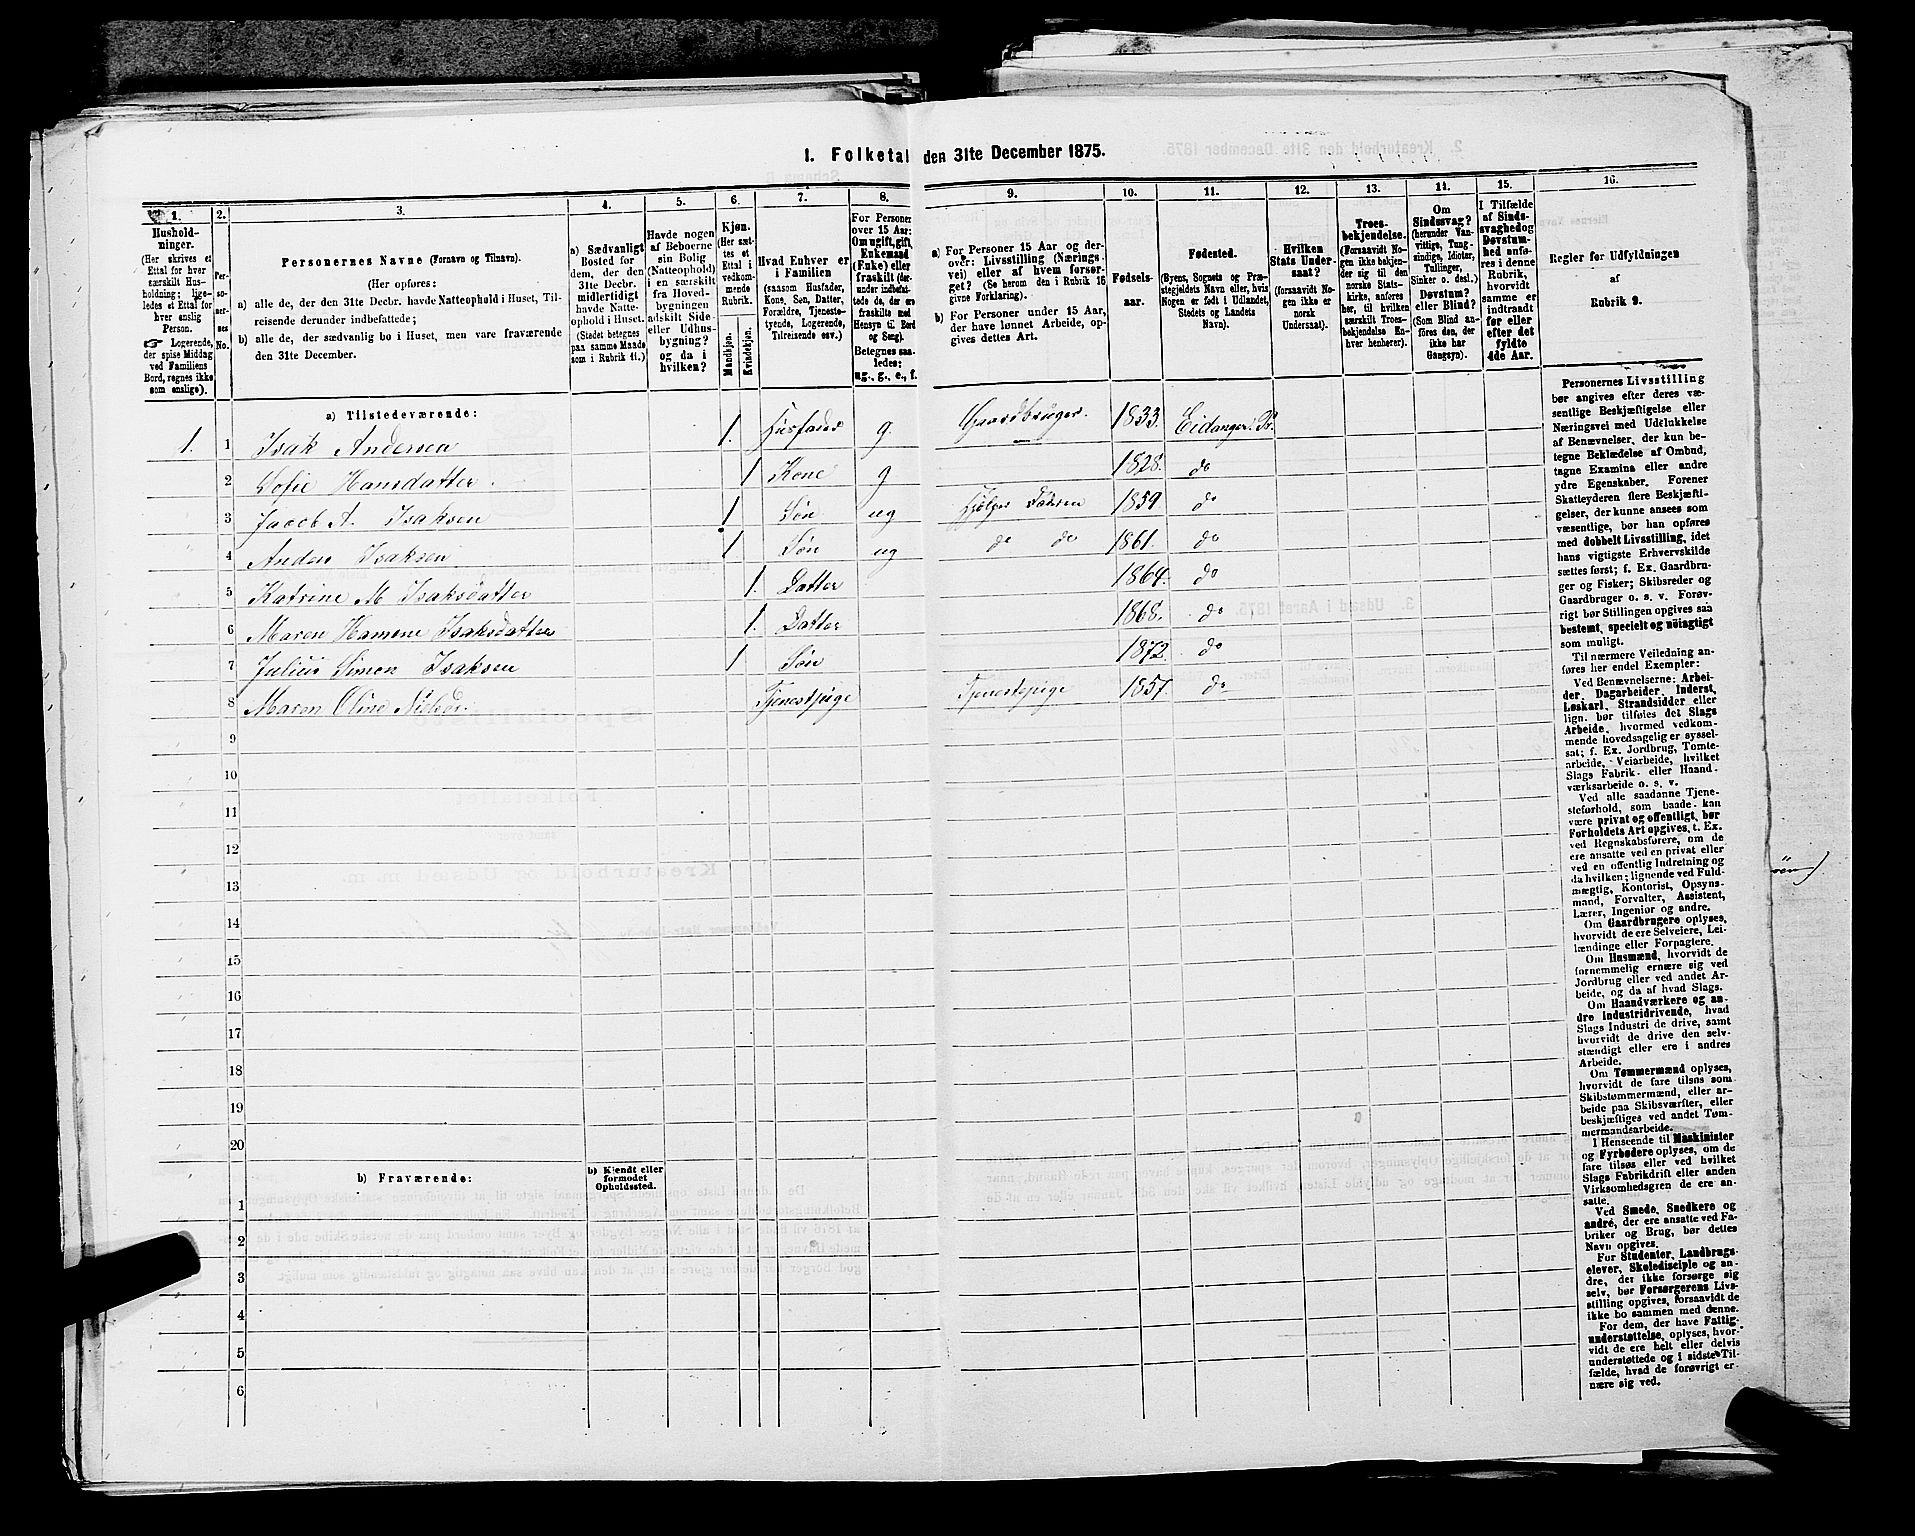 1. Folketal den 31te December 1875.
1. 2. 3. 4. 5. 6. 7. 8. 9. 10. 11. 12. 13. 14. 15. 16.
Hushold-
ninger.
(Her skrives et
Ettal for hver
særskilt Hus-
holdning; lige-
ledes et Ettal for
hver enslig
Person.
☞ Logerende,
der spise Middag
ved Familiens
Bord, regnes ikke
som enslige).
Per-
so-
ner-
nes
No.
Personernes Navne (Fornavn og Tilnavn).
(Her opføres:
a) alle de, der den 31te Decbr. havde Natteophold i Huset, Til-
reisende derunder indbefattede;
b) alle de, der sædvanlig bo i Huset, men vare fraværende
den 31te December.
a) Sædvanligt
Bosted for
dem, der den
31te Decbr.
midlertidigt
havde Natte-
ophold i Huset.
(Stedet betegnes
paa samme Maade
som i Rubrik 11.)
Havde nogen
af Beboerne
sin Bolig
(Natteophold)
i en særskilt
fra Hoved-
bygningen
adskilt Side-
eller Udhus-
bygning?
og da i
hvilken?
Kjøn.
(Her sæt-
tes et
Ettal i
vedkom-
mende
Rubrik.
Mandkjøn.
Kvindekjøn.
Hvad Enhver er
i Familien
(saasom Husfader,
Kone, Søn, Datter,
Forældre, Tjeneste-
tyende, Logerende,
Tilreisende osv.)
For Personer
over 15 Aar:
Om ugift, gift,
Enkemand
(Enke) eller
fraskilt (der-
under indbefat-
tede de, der ere
fraskilte med
Hensyn til Bord
og Seng).
Betegnes saa-
ledes:
ug., g., e., f.
a) For Personer 15 Aar og der-
over: Livsstilling (Nærings-
vei) eller af hvem forsør-
get? (Se herom den i Rubrik 16
givne Forklaring).
b) For Personer under 15 Aar,
der have lønnet Arbeide, op-
gives dettes Art.
Fødsels-
aar.
Fødested.
(Byens, Sognets og Præ-
stegjeldets Navn eller, hvis
Nogen er født i Udlandet,
Stedets og Landets
Navn).
Hvilken
Stats Under-
saat?
(forsaavidt No-
gen ikke er
norsk
Undersaat).
Troes-
bekjendelse.
(Forsaavidt No-
gen ikke bekjen-
der sig til den
norske Stats-
kirke, anføres
her, til hvilken
særskilt Troes-
bekjendelse En-
hver henhører).
Om
Sindssvag?
(herunder Van-
vittige, Tung-
sindige, Idioter,
Tullinger,
Sinker o. desl.)
Døvstum?
eller Blind?
(Som Blind an-
føres den, der
ikke har
Gangsyn).
I Tilfælde
af Sinds-
svaghed og
Døvstum-
hed anfø-
res i denne
Rubrik,
hvorvidt
samme er
indtraadt
før eller
efter det
fyldte
4de Aar.
Regler for Udfyldningen
af
Rubrik 9.
a) Tilstedeværende:
1. 1 Isak Andersen 1. Husfader g. Gaardbruger. 1833. Eidanger Pr.
2 Sofie Hansdatter. 1 Kone g 1828. do
3 Jacob A. Isaksen 1 Søn ug Hjelper Faderen 1859 do
4 Anders Isaksen 1 Søn ug do do 1861. do
5 Katrine M Isaksdatter 1. Datter 1864. do
6 Maren Hamine Isaksdatter 1. Datter 1868. do
7 Julius Simon Isaksen 1 Søn 1872. do
8 Maren Oline Nielsd. Tjenestpige Tjenestepige 1857. do
9
10
11
12
13
14
15
16
17
18
19
20
b) Fraværende:
b) Kjendt eller
formodet
Opholdssted.
1
2
3
4
5
6
Personernes Livsstilling
bør angives efter deres væ-
sentlige Beskjæftigelse eller
Næringsvei med Udelukkelse
af Benævnelser, der kun be-
tegne Beklædelse af Ombud,
tagne Examina eller andre
ydre Egenskaber. Forener
Skatteyderen flere Beskjæfti-
gelser, der kunne ansees som
væsentlige, bør han opføres
med dobbelt Livsstilling, idet
hans vigtigste Erhvervskilde
sættes først; f. Ex. Gaardbru-
ger og Fisker; Skibsreder og
Gaardbruger o. s. v. Forøv-
rigt bør Stillingen opgives saa
bestemt, specielt og nøiagtigt
som muligt.
Til nærmere Veiledning an-
føres her endel Exempler:
Ved Benævnelserne: Arbei-
der, Dagarbeider, Inderst,
Løskarl, Strandsidder eller
lign. bør tilføies det Slags
Arbeide, hvormed vedkom-
mende hovedsagelig er syssel-
sat; f. Ex. Jordbrug, Tomte-
arbeide, Veiarbeide, hvilket
Slags Fabrik- eller Haand-
værksarbeide o. s. v.
Ved alle saadanne Tjene-
steforhold, som baade kan
være privat og offentligt, bør
Forholdets Art opgives, t. Ex.
ved Regnskabsførere, om de
ere ansatte ved en privat eller
ved en offentlig Indretning og
da hvilken; lignende ved Fuld-
mægtig, Kontorist, Opsyns-
mand, Forvalter, Assistent,
Lærer, Ingeniør og andre.
Om Gaardbrugere oplyses,
hvorvidt de ere Selveiere, Lei-
lændinge eller Forpagtere.
Om Husmænd, hvorvidt de
fornemmelig ernære sig ved
Jordbrug eller ved andet Ar-
beide, og da af hvad Slags.
Om Haandværkere og an-
dre Industridrivende, hvad
Slags Industri de drive, samt
hvorvidt de drive den selv-
stændigt eller ere i andres
Arbeide.
Om Tømmermænd oplyses,
hvorvidt de fare tilsøs som
Skibstømmermænd, eller ar-
beide paa Skibsværfter, eller
beskjæftiges ved andet Tøm-
mermandsarbeide.
I Henseende til Maskinister
og Fyrbødere oplyses, om de
fare tilsøs eller ved hvilket
Slags Fabrikdrift eller anden
Virksomhedsgren de ere an-
satte.
Ved Smede, Snedkere og
andre, der ere ansatte ved Fa-
briker og Brug, bør dettes
Navn opgives.
For Studenter, Landbrugs-
elever, Skoledisciple og an-
dre, der ikke forsørge sig
selv, bør Forsørgerens Livs-
stilling opgives, forsaavidt de
ikke bo sammen med denne.
For dem, der have Fattig-
understøttelse, oplyses, hvor-
vidt de ere helt eller delvis
understøttede og i sidste Til-
fælde, hvad de forøvrigt er-
nære sig ved.